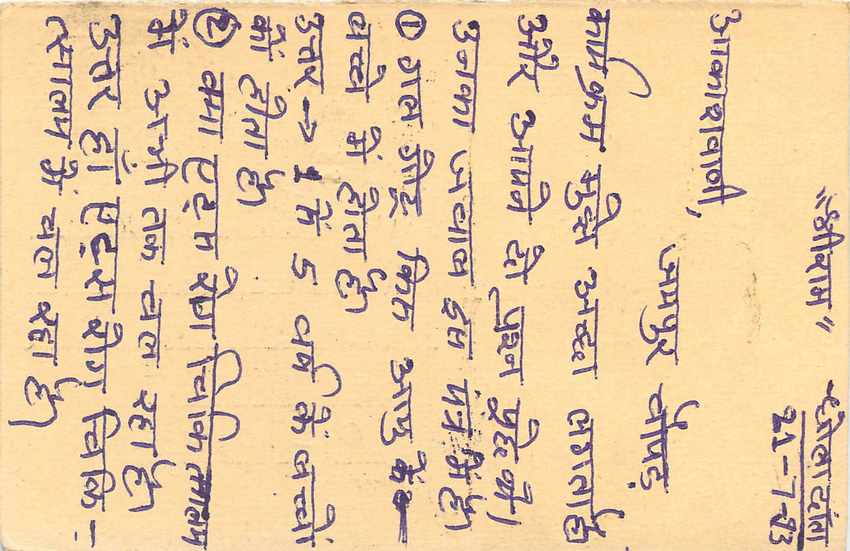 "श्रीराम"
धोलादांता
21-7-93
आकाशवाणी,
जयपुर चौपड़
कार्यक्रम मुझे अच्छा लगता है
और आपने दो प्रश्न पूछे थे।
उनका जवाब इस पत्र में है।
① गल गोटू किस आयु के
बच्चे में होता है।
उत्तर → 1 से 5 वर्ष के बच्चों
को होता है।
② क्या एड्स रोग चिकित्सालय
में अभी तक चल रहा है।
उत्तर हाँ एड्स रोग चिकि-
त्सालय में चल रहा है।